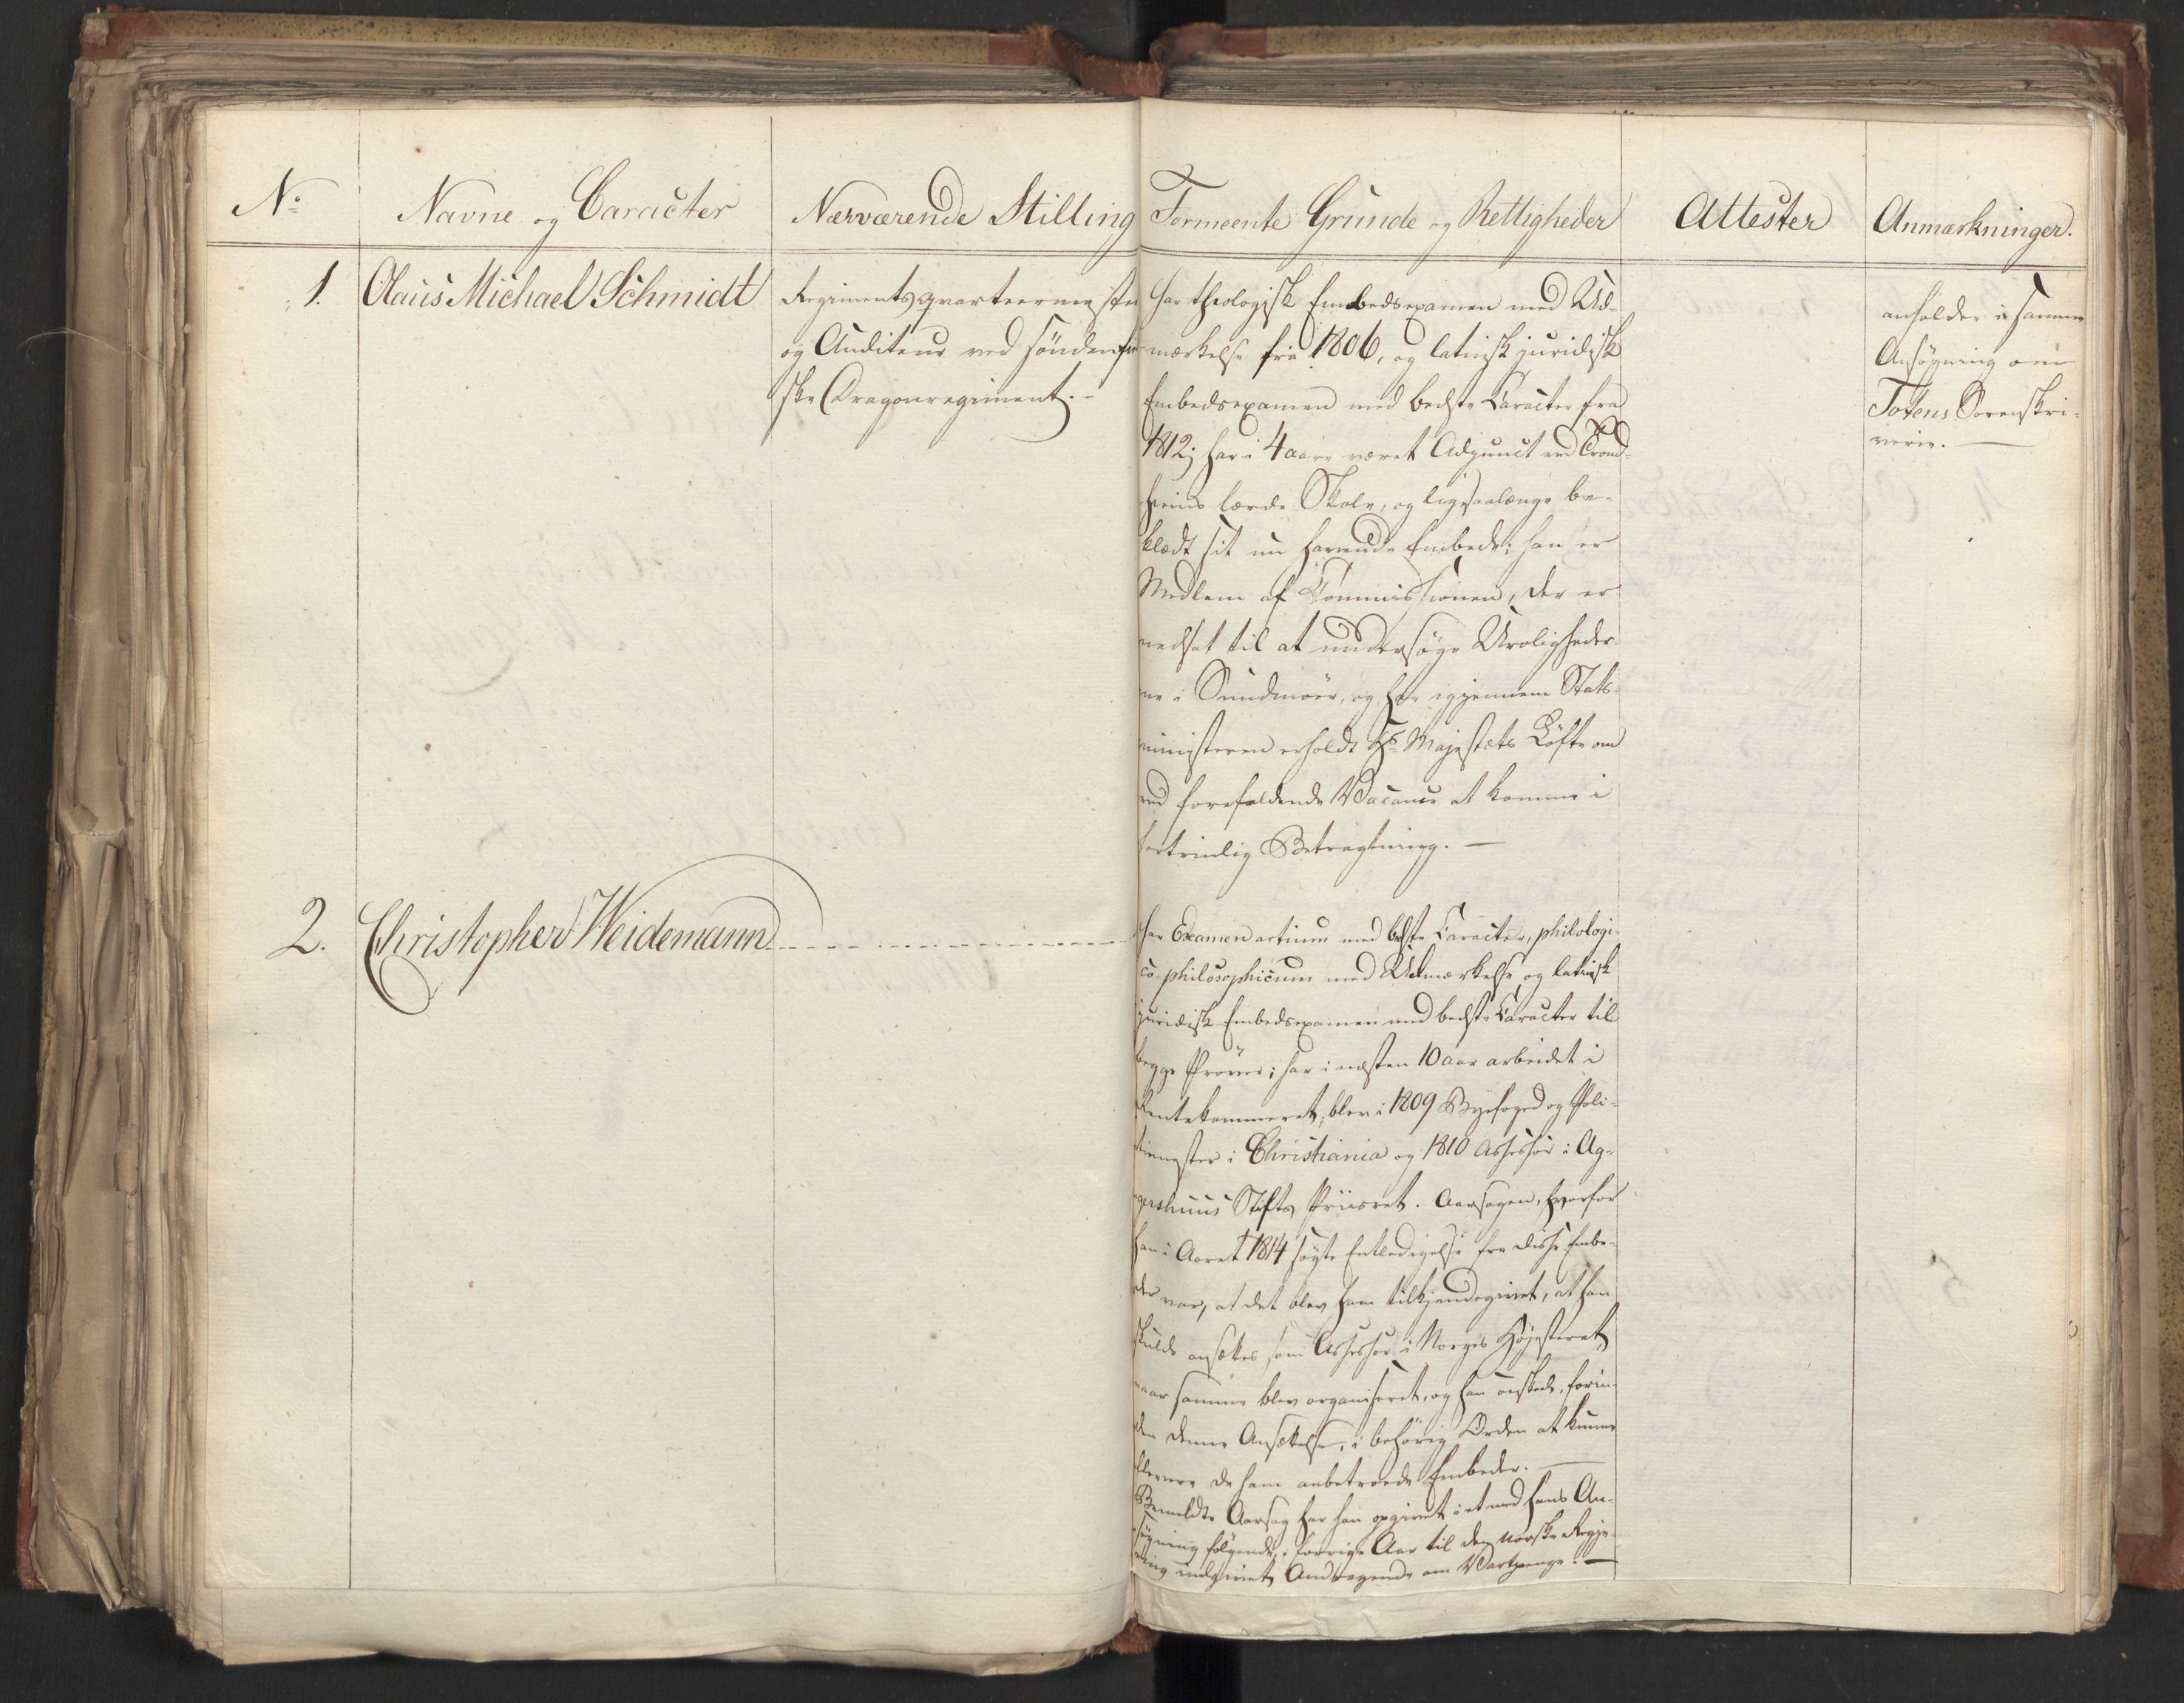 No
Navne og Caracter
Nærværende Stilling
Formeente Grunde og Rettigheder
Attester
Anmærkninger.
1.
Olaus Michael Schmidt
Regimentsqvarteermester
og Auditeur ved søndenfjel-
ske Dragonregiment. -
har theologisk Embedsexamen med Ud-
mærkelse fra 1806, og latinsk juridisk
Embedsexamen med bedste Caracter fra
1812; har i 4 aar været Adjunct ved Trond-
hiems lærde Skole, og ligesaalænge be-
klædt sit nu havende Embede; han er
Medlem af Commissionen, der er
nedsat til at undersøge Uroligheder-
ne i Sundmøer, og har igjennem Stats-
ministeren erholdt Hs Majestæts Løfte om
ved forefaldende Vacance at komme i
fortrinlig Betragtning. —
anholder i samme
Ansøgning om
Totens Sorenskri-
verie. —
2.
Christopher Weidemann
har Examen artium med bedste Caracter, philologi-
co-philosophicum med Udmærkelse og latinsk
juridisk Embedsexamen med bedste Caracter til
begge Prøver; har i næsten 10 aar arbeidet i
Rentekammeret, blev i 1809 Byefoged og Poli-
timester i Christiania og 1810 Assessor i Ag-
gershuus Stifts Priisret. Aarsagen, hvorfor
han i Aaret 1814 søgte Entledigelse fra disse Embe-
der var, at det blev ham tilkjendegivet, at han
skulde ansættes som Assessor i Norges Høiesteret,
naar samme blev organiseret, og han ønskede, forin-
den denne Ansættelse, i behørig Orden at kunne
aflevere de ham anbetroede Embeder. —
Bemeldte Aarsag har han opgivet i et med hans An-
søgning følgende, i forrige Aar til den norske Regje-
ring indgivet Andragende om Vartpenge. —